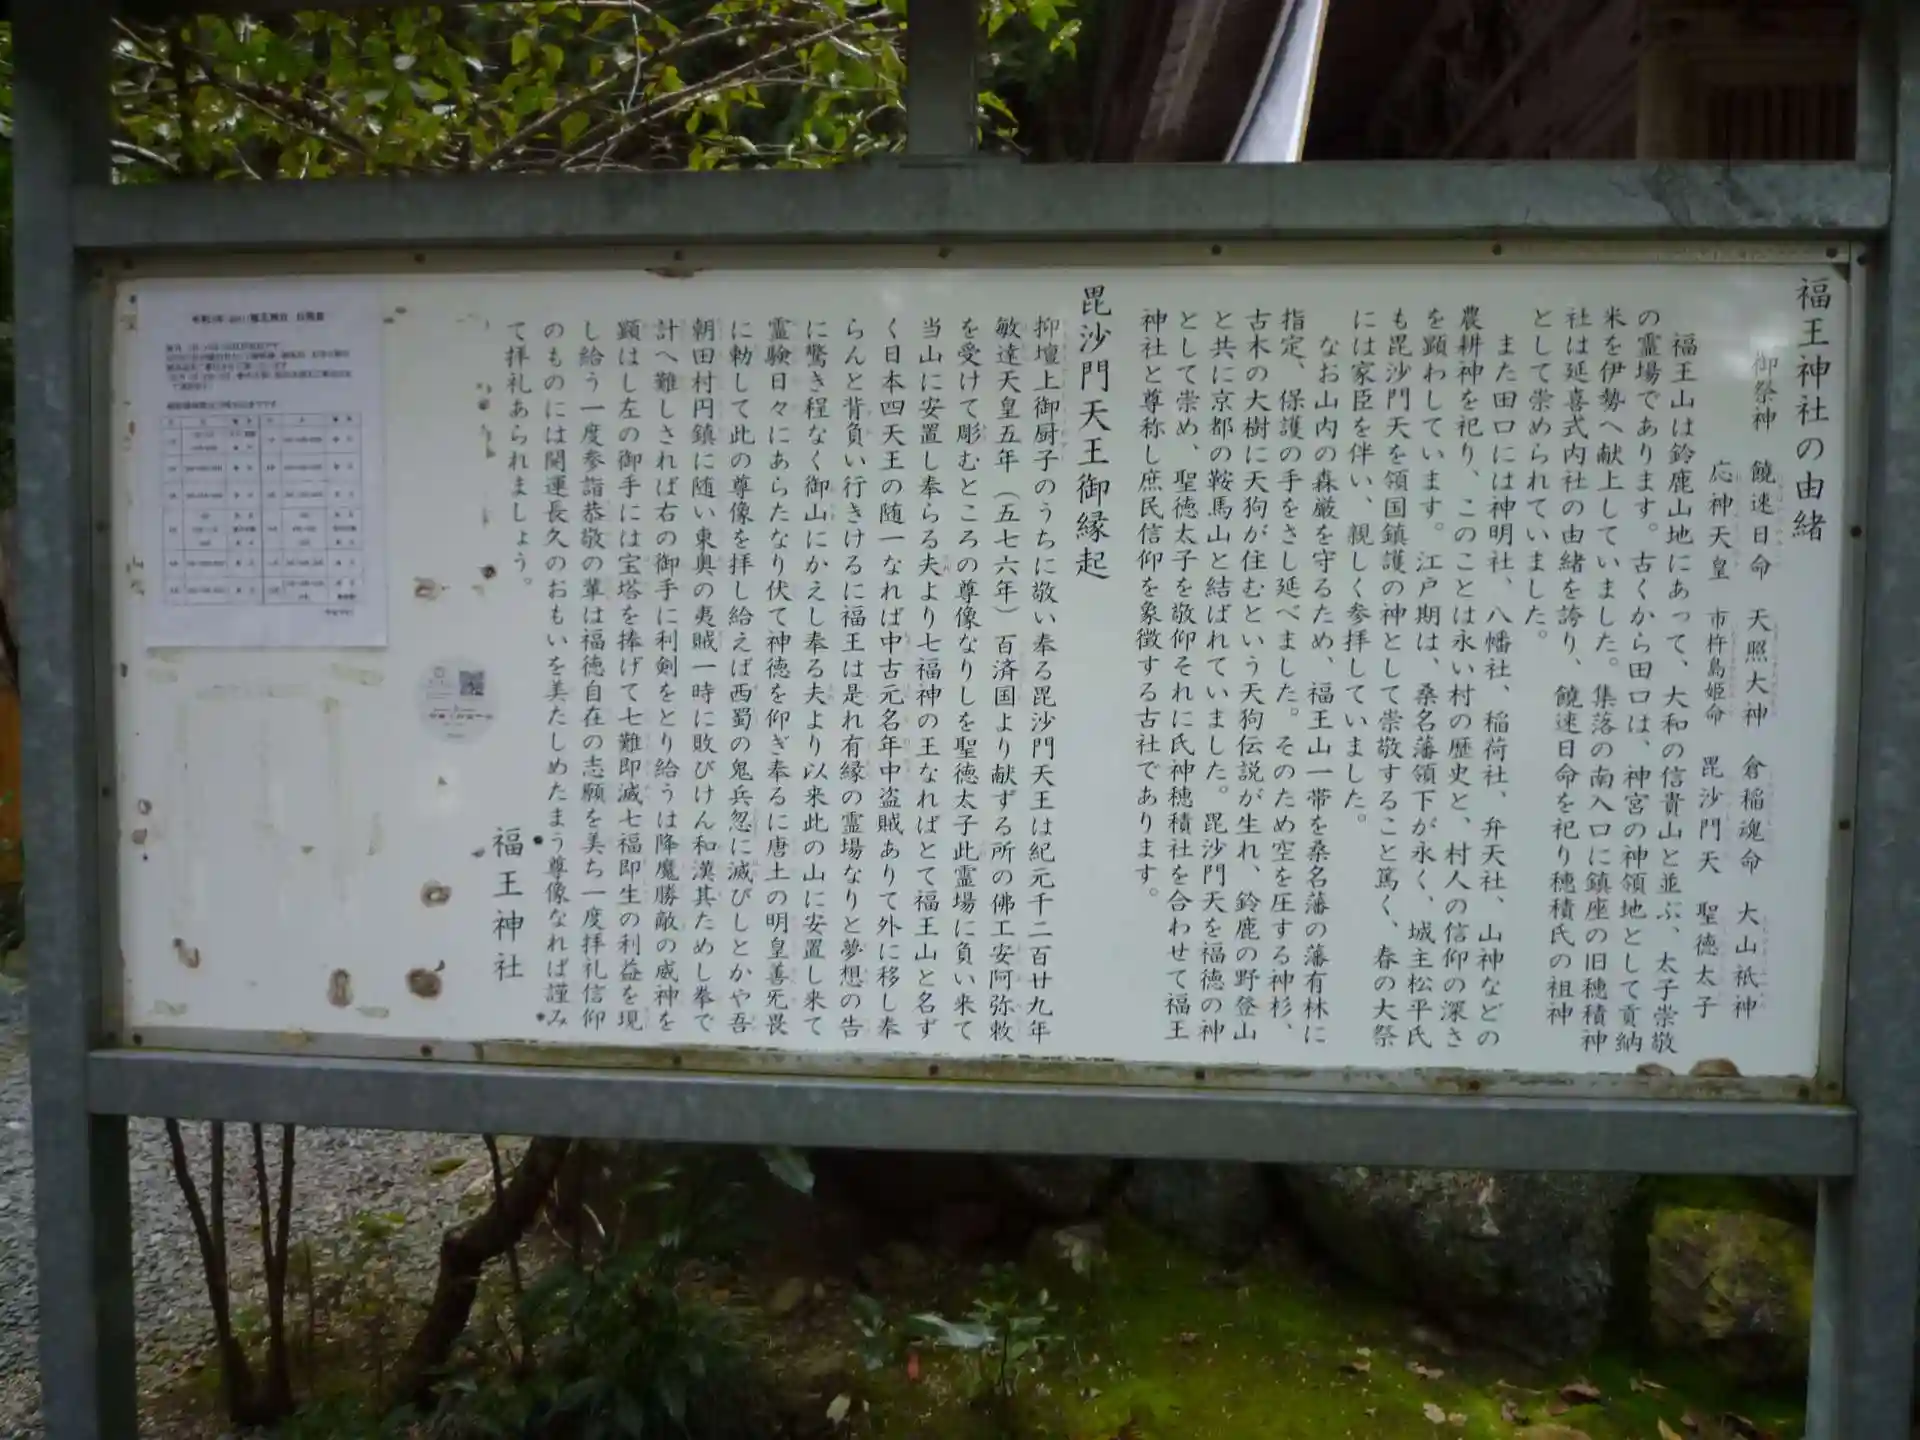 福王神社の由緒
御祭神 饒速日命 天照大神 倉稲魂命 大山祇神
応神天皇 市杵島姫命 毘沙門天 聖徳太子
福王山は鈴鹿山地にあって、大和の信貴山と並ぶ、太子崇敬
の霊場であります。古くから田口は、神宮の神領地として貢納
米を伊勢へ献上していました。集落の南入口に鎮座の旧穂積神
社は延喜式内社の由緒を誇り、饒速日命を祀り穂積氏の祖神
として崇められていました。
また田口には神明社、八幡社、稲荷社、弁天社、山神などの
農耕神を祀り、このことは永い村の歴史と、村人の信仰の深さ
を顕わしています。江戸期は、桑名藩領下が永く、城主松平氏
も毘沙門天を領国鎮護の神として崇敬すること篤く、春の大祭
には家臣を伴い、親しく参拝していました。
なお山内の森厳を守るため、福王山一帯を桑名藩の藩有林に
指定、保護の手をさし延べました。そのため空を圧する神杉、
古木の大樹に天狗が住むという天狗伝説が生れ、鈴鹿の野登山
と共に京都の鞍馬山と結ばれていました。毘沙門天を福徳の神
として崇め、聖徳太子を敬仰それに氏神穂積社を合わせて福王
神社と尊称し庶民信仰を象徴する古社であります。
毘沙門天王御縁起
抑壇上御厨子のうちに敬い奉る毘沙門天王は紀元千二百廿九年
敏達天皇五年（五七六年）百済国より献ずる所の佛工安阿弥敕
を受けて彫むところの尊像なりしを聖徳太子此霊場に負い来て
当山に安置し奉らる夫より七福神の王なればとて福王山と名ず
く日本四天王の随一なれば中古元名年中盗賊ありて外に移し奉
らんと背負い行きけるに福王は是れ有縁の霊場なりと夢想の告
に驚き程なく御山にかえし奉る夫より以来此の山に安置し来て
霊験日々にあらたなり伏て神徳を仰ぎ奉るに唐土の明皇善死畏
に勅して此の尊像を拝し給えば西蜀の鬼兵忽に滅びしとかや吾
朝田村円鎮に随い東奥の夷賊一時に敗びけん和漢其ためし挙で
計へ難しされば右の御手に利剣をとり給うは降魔勝敵の威神を
顕はし左の御手には宝塔を捧げて七難即滅七福即生の利益を現
し給う一度参詣恭敬の輩は福徳自在の志願を美ち一度拝礼信仰
のものには開運長久のおもいを美たしめたまう尊像なれば謹み
て拝礼あられましょう。
福王神社